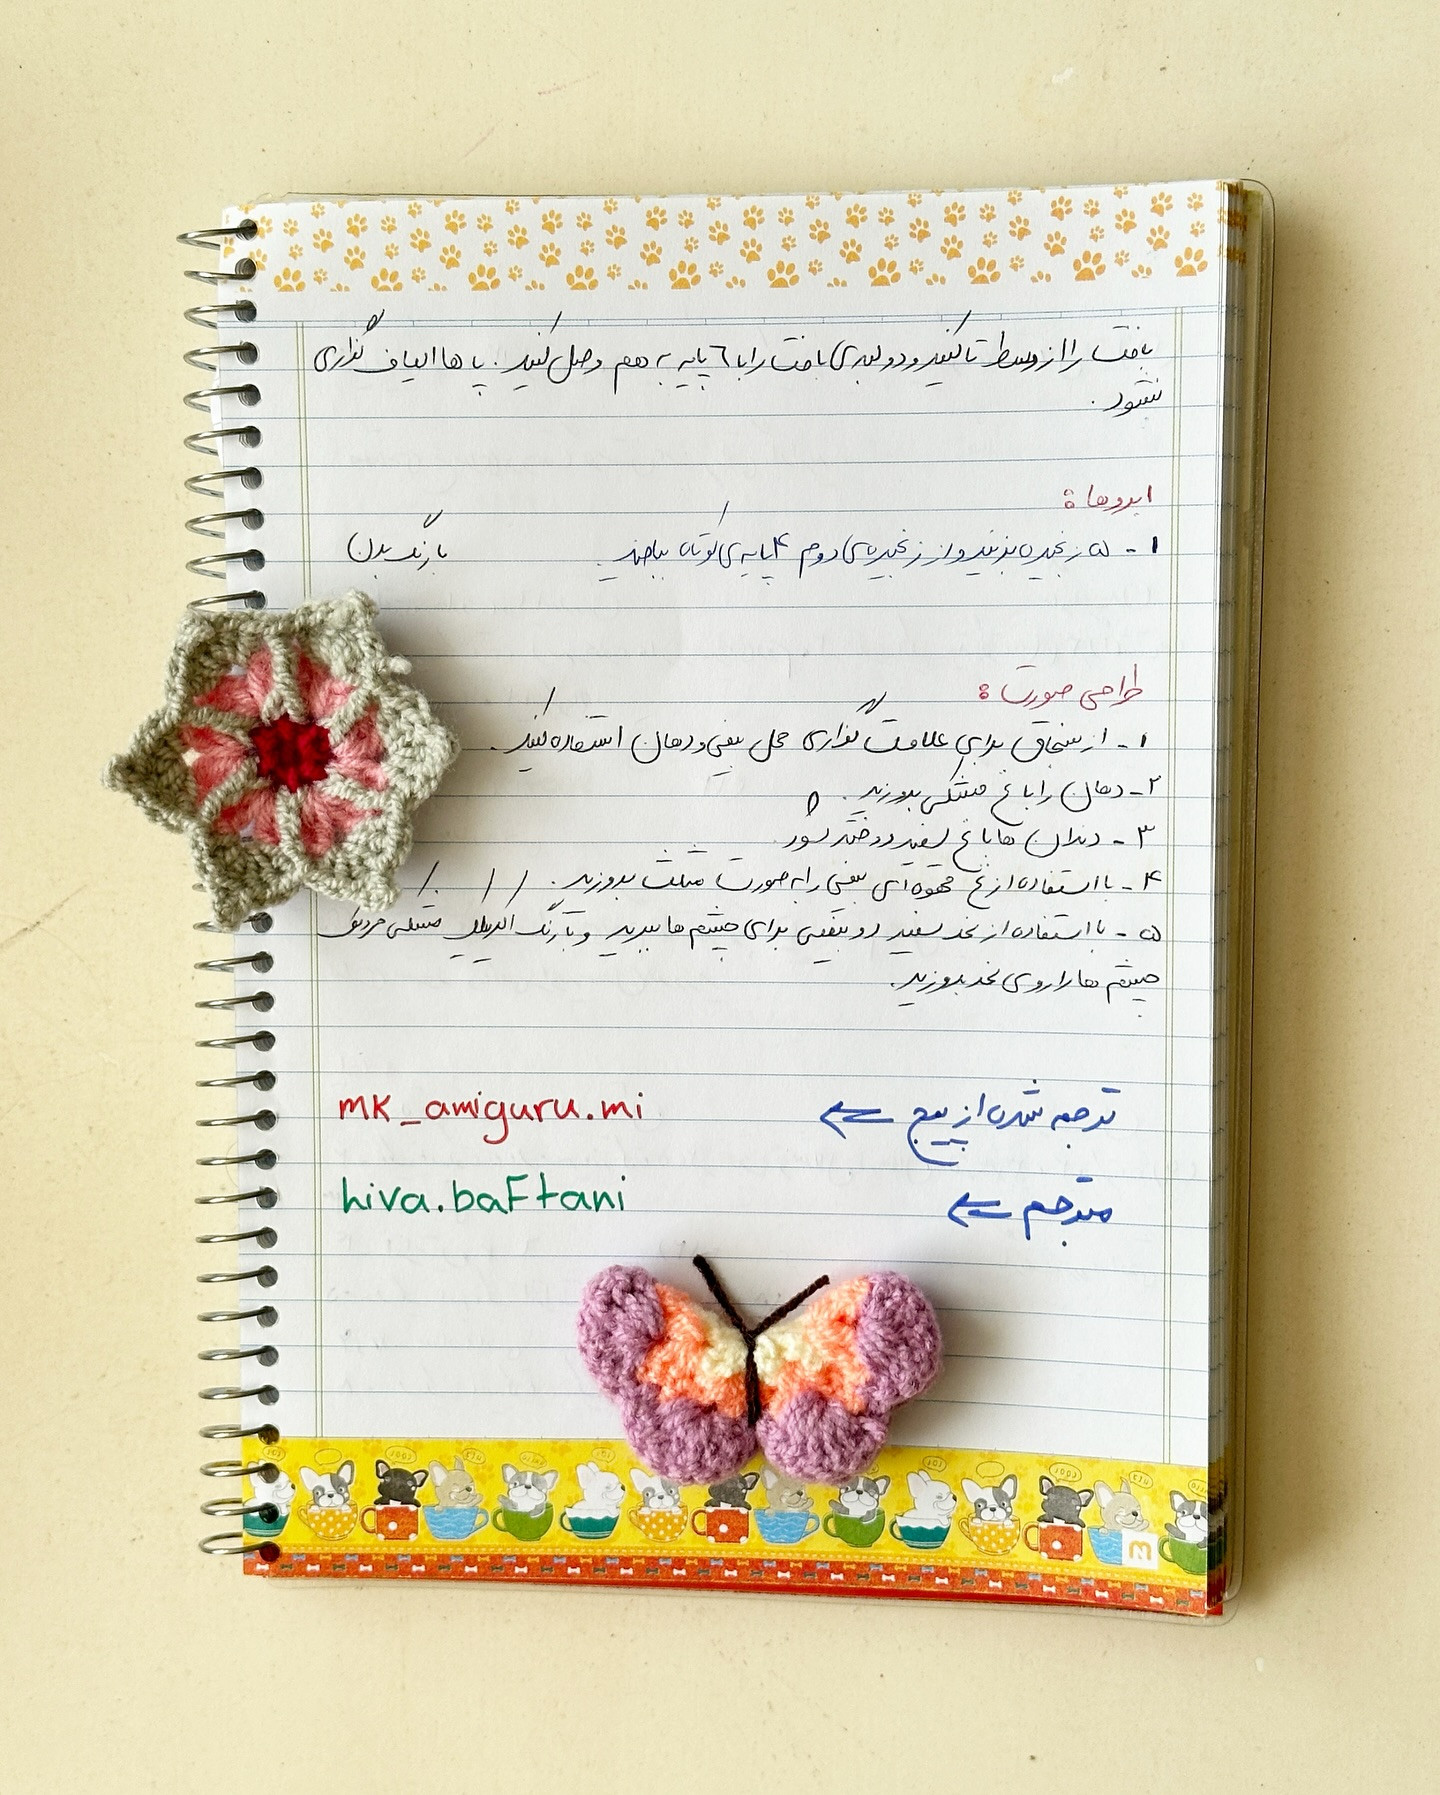 بافت را از وسط تا کنید و دو لبه‌ی بافت را با ۶ پایه به هم وصل کنید. پا ها الیاف گذاری
نشود.
ابروها:
۱- ۵ زنجیره بزنید و از زنجیره‌ی دوم ۴ پایه‌ی کوتاه ببافید. با رنگ بدن
طراحی صورت:
۱- از سنجاق برای علامت گذاری محل بینی و دهان استفاده کنید.
۲- دهان را با نخ مشکی بدوزید.
۳- دندان ها با نخ سفید دوخته شود.
۴- با استفاده از نخ قهوه‌ای بینی را به صورت مثلث بدوزید.
۵- با استفاده از نمد سفید دو بیضی برای چشم ها ببرید و با رنگ اکریلیک مشکی مردمک
چشم ها را روی نمد بدوزید.
ترجمه شده از پیج ← mk_amiguru.mi
مترجم ← hiva.baftani